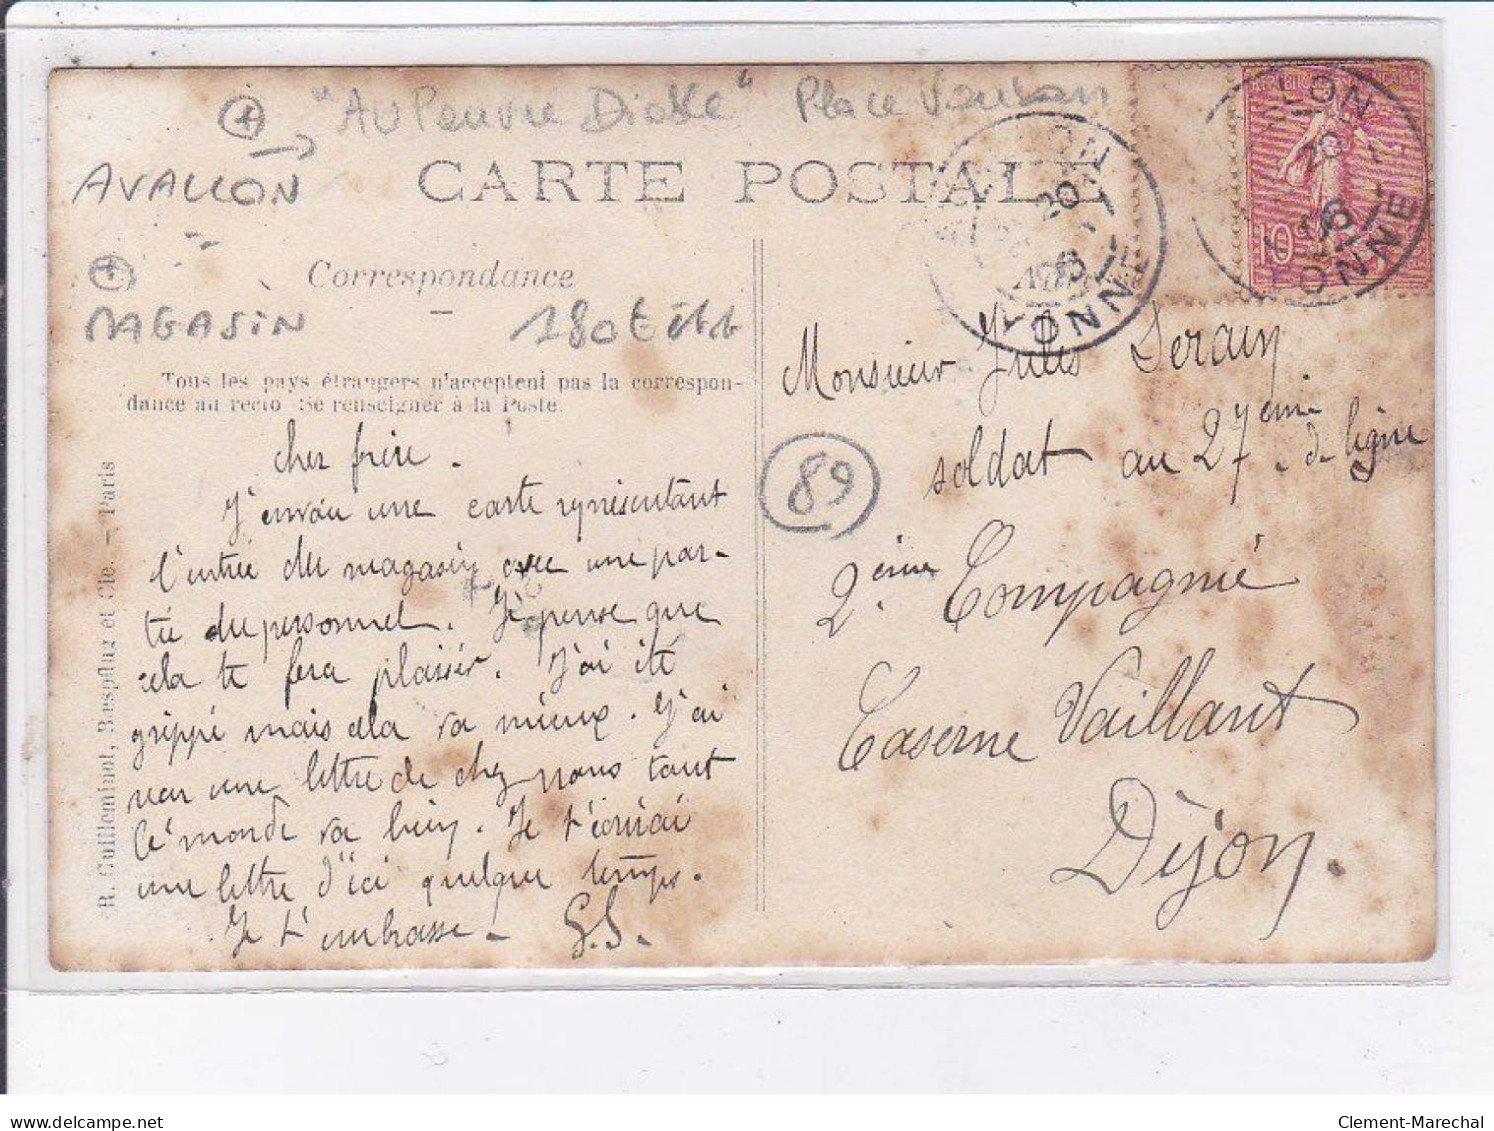 "Au Pauvre Diable" Place Vauban
AVALLON
CARTE POSTALE
Correspondance
MAGASIN
180
Tous les pays étrangers n'acceptent pas la correspon-
dance au recto Se renseigner à la Poste.
R. Guilleminot, Bœspflug et Cie. — Paris
cher frère.
J'envoie une carte représentant
l'entrée du magasin avec une par-
tie du personnel. Je pense que
cela te fera plaisir. J'ai été
grippé mais cela va mieux. J'ai
une lettre de chez nous tout
le monde va bien. Je t'écrirai
une lettre d'ici quelque temps.
Je t'embrasse.
RÉPUBLIQUE FRANÇAISE
10
LON
20
06
YONNE
LON
20
YONNE
Monsieur Jules Derain
soldat au 27ème de ligne
89
2ème Compagnie
Caserne Vaillant
Dijon.
delcampe.net
Clement-Marechal